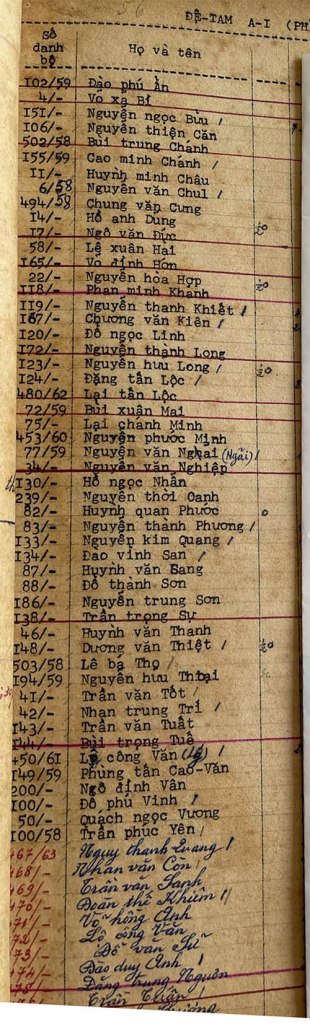 ĐỆ-TAM A-I (PH
Số danh bộ Họ và tên
I02/59 Đào phú Ẩn
4/- Vo xa Bỉ
I5I/- Nguyễn ngọc Bửu /
I06/- Nguyễn thiện Căn
502/58 Bùi trung Chánh
I55/59 Cao minh Chánh /
II/- Huỳnh minh Châu
6/58 Nguyễn văn Chul /
494/58 Chung văn Cung
I4/- Hồ anh Dung
I7/- Ngô văn Đức
58/- Lê xuân Hai
I65/- Vo đình Hớn
22/- Nguyễn hòa Hợp
II8/- Phan minh Khanh
II9/- Nguyễn thanh Khiết /
I67/- Chương văn Kiên /
I20/- Đỗ ngọc Linh
I72/- Nguyễn thành Long
I23/- Nguyễn hưu Long /
I24/- Đặng tấn Lộc /
480/62 Lại tấn Lộc
72/59 Bùi xuân Mai
75/- Lại chánh Minh
453/60 Nguyễn phước Minh
77/59 Nguyễn văn Nghai (Ngãi) /
34/- Nguyễn văn Nghiệp
I30/- Hồ ngọc Nhẫn
239/- Nguyễn thời Oanh
82/- Huỳnh quan Phước
83/- Nguyễn thành Phương /
I33/- Nguyễn kim Quang /
I34/- Đao vinh San /
87/- Huỳnh văn Sang
88/- Đỗ thành Sơn
I86/- Nguyễn trung Sơn
I38/- Trần trọng Sự
46/- Huỳnh văn Thanh
I48/- Dương văn Thiệt /
503/58 Lê bá Thọ /
I94/59 Nguyễn hưu Thoại
4I/- Trần văn Tốt /
42/- Nhan trung Trí /
I43/- Trần văn Tuất
I44/- Bùi trọng Tuệ
450/6I công Văn /
I49/59 Phùng tấn Cao-Văn
200/- Ngô đình Vân
I00/- Đỗ phú Vinh /
50/- Quách ngọc Vương
I00/58 Trần phúc Yên /
467/63 Ngụy thanh Quang /
468/- Nhan văn Còn /
469/- Trần văn Sanh
470/- Đoàn thế Khiêm //
71/- Võ hồng Anh
72/- Lê công Văn
73/- Đỗ văn Sử
474/- Đào duy Anh /
75/- Đặng trung Nguyên
Trần